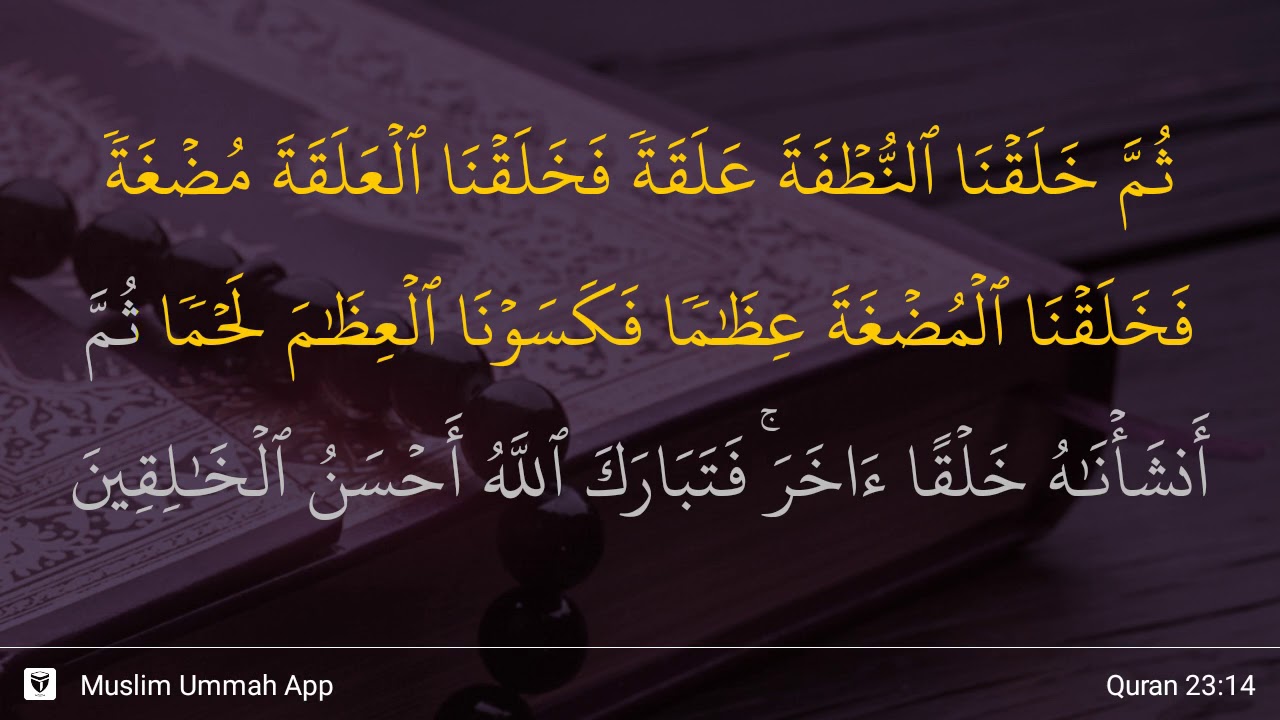 ثُمَّ خَلَقۡنَا ٱلنُّطۡفَةَ عَلَقَةٗ فَخَلَقۡنَا ٱلۡعَلَقَةَ مُضۡغَةٗ
فَخَلَقۡنَا ٱلۡمُضۡغَةَ عِظَٰمٗا فَكَسَوۡنَا ٱلۡعِظَٰمَ لَحۡمٗا ثُمَّ
أَنشَأۡنَٰهُ خَلۡقًا ءَاخَرَۚ فَتَبَارَكَ ٱللَّهُ أَحۡسَنُ ٱلۡخَٰلِقِينَ
Muslim Ummah App
Quran 23:14